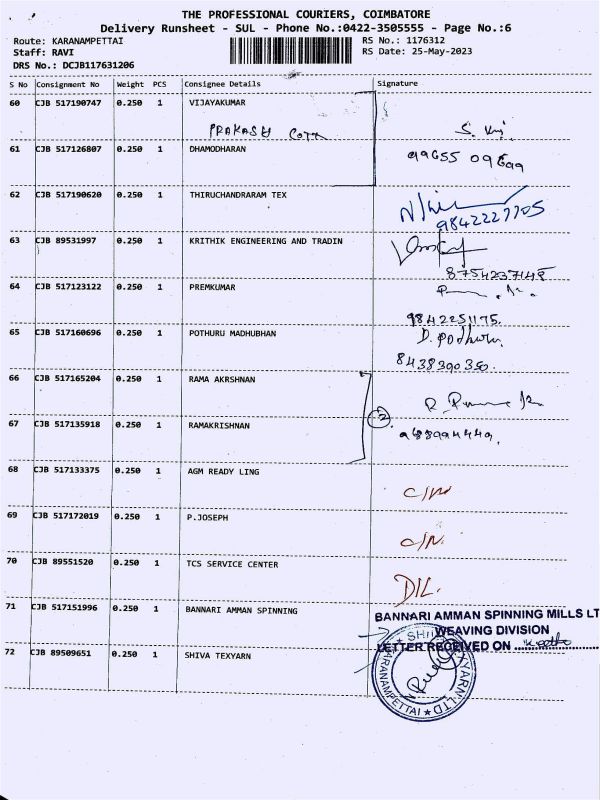 THE PROFESSIONAL COURIERS, COIMBATORE
Delivery Runsheet - SUL - Phone No.:0422-3505555 - Page No.:6
Route: KARANAMPETTAI RS No.: 1176312
Staff: RAVI RS Date: 25-May-2023
DRS No.: DCJB117631206
S No Consignment No Weight PCS Consignee Details Signature
60 CJB 517190747 0.250 1 VIJAYAKUMAR
PRAKASH COTX
61 CJB 517126807 0.250 1 DHAMODHARAN
62 CJB 517190620 0.250 1 THIRUCHANDRARAM TEX
9842227705
63 CJB 89531997 0.250 1 KRITHIK ENGINEERING AND TRADIN
8754237148
64 CJB 517123122 0.250 1 PREMKUMAR
9842251175.
65 CJB 517160696 0.250 1 POTHURU MADHUBHAN
D. Podhuru
8438390350.
66 CJB 517165204 0.250 1 RAMA AKRSHNAN
2
67 CJB 517135918 0.250 1 RAMAKRISHNAN
68 CJB 517133375 0.250 1 AGM READY LING
C/N
69 CJB 517172019 0.250 1 P.JOSEPH
C/N.
70 CJB 89551520 0.250 1 TCS SERVICE CENTER
D/L.
71 CJB 517151996 0.250 1 BANNARI AMMAN SPINNING
BANNARI AMMAN SPINNING MILLS LT
WEAVING DIVISION
LETTER RECEIVED ON
72 CJB 89509651 0.250 1 SHIVA TEXYARN
SHI
YARN LTD
KARANAMPETTAI